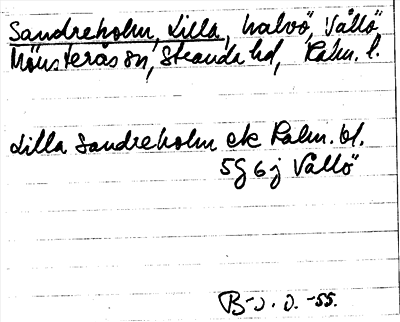 Sandreholm, Lilla, halvö, Vållö,
Mönsterås sn, Stranda hd, Kalm. l.
Lilla Sandreholm ek Kalm. bl.
5G 6j Vållö
B-J. O. -55.